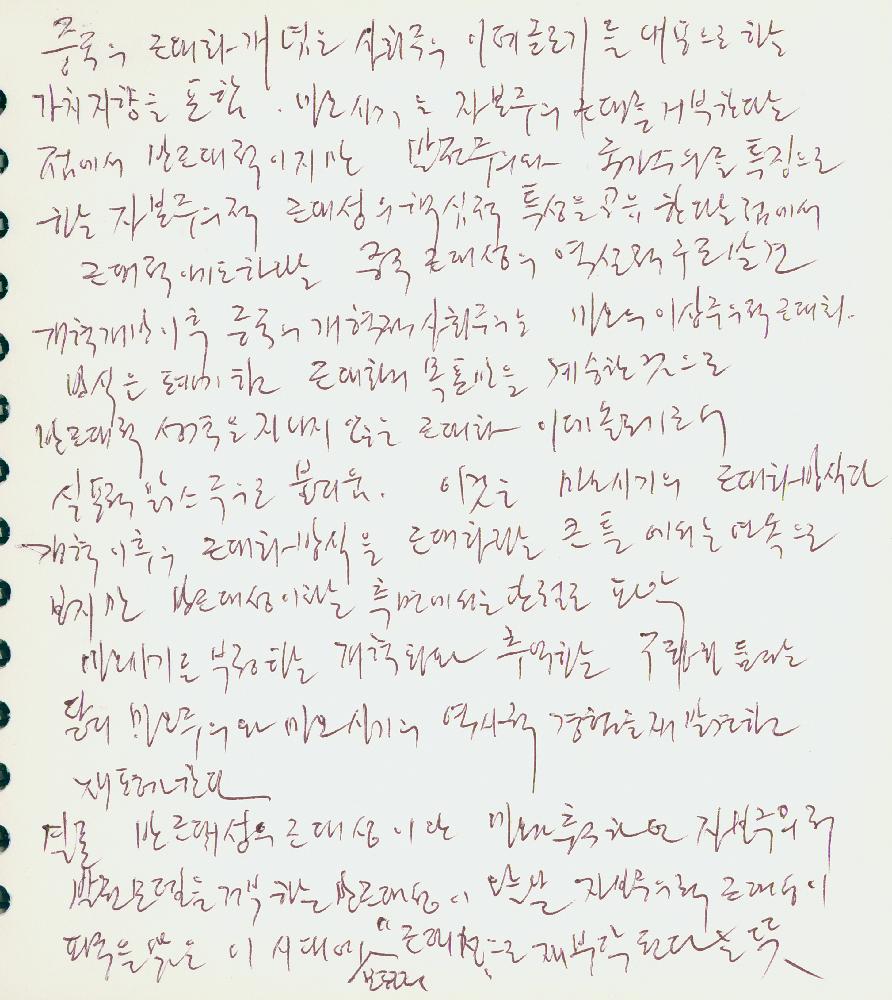 중국의 근대화 개념은 사회주의 이데올로기를 내용으로 하는
가치지향을 포함. 마오시기는 자본주의 근대를 거부한다는
점에서 반근대적이지만 발전주의와 국가주의를 특징으로
하는 자본주의적 근대성의 핵심적 특성을 공유한다는 점에서
근대적 중국 근대성의 역설적
개혁개방 이후 중국의 개혁적 사회주의는 마오의 이상주의적 근대화
방식은 폐기하고 근대화의 목표만을 계승한 것으로
반근대적 성격을 지니지 않는 근대화 이데올로기로서
실용적 맑스주의로 불리움. 이것은 마오시기의 근대화 방식과
개혁 이후의 근대화 방식을 근대화라는 큰 틀에서는 연속으로
보지만 반근대성이라는 측면에서는 단절로 파악
마오시기를 부정하는 개혁파와 추억하는 구좌파들과는
달리 마오주의와 마오시기의 역사적 경험을 재발견하고
재토대한다
결론 반근대성의 근대성이란 마오가 추구하던 자본주의적
발전모델을 거부하는 반근대성이 오늘날 자본주의적 근대성이
파국을 맞은 이 시대에 "근대성"으로 재부각된다는 뜻
보편적